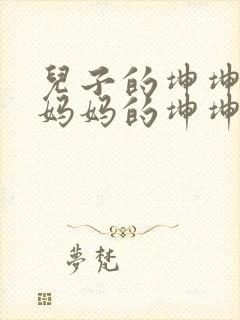 兒子的坤坤
妈妈的坤坤
夢梵